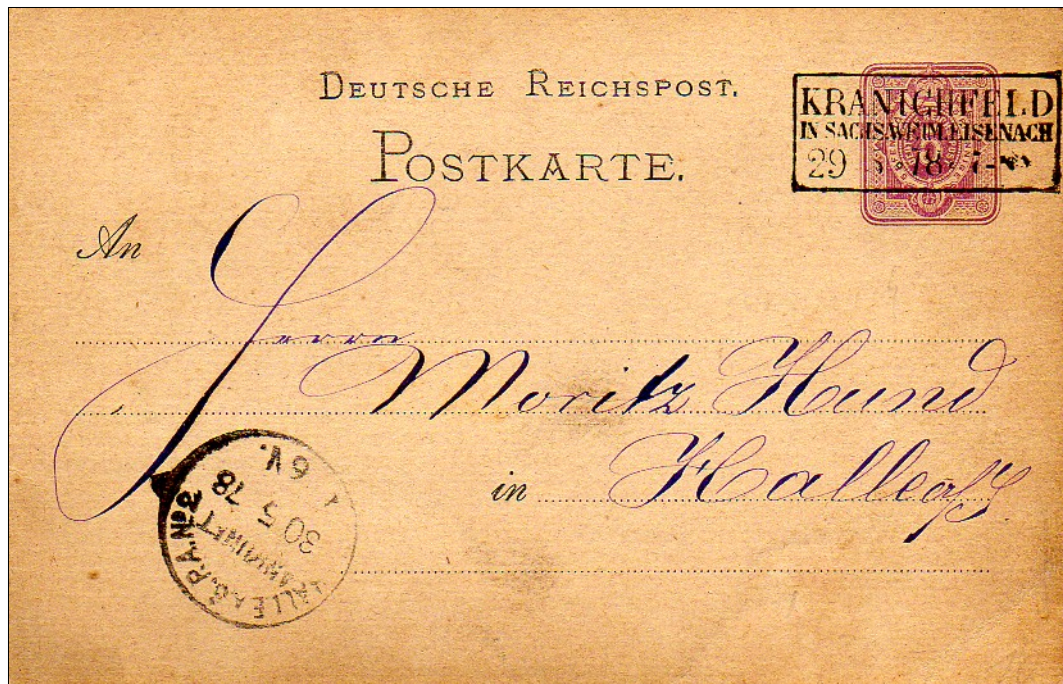 DEUTSCHE REICHSPOST.
POSTKARTE.
KRANICHFELD
IN SACHS.WEIM.EISENACH
29 5 78 7-
An
Herrn
Moritz Hund
in Halle a/S.
HALLE A.S. P.A. No 2
ANKUNFT
30 5 78
6 V.